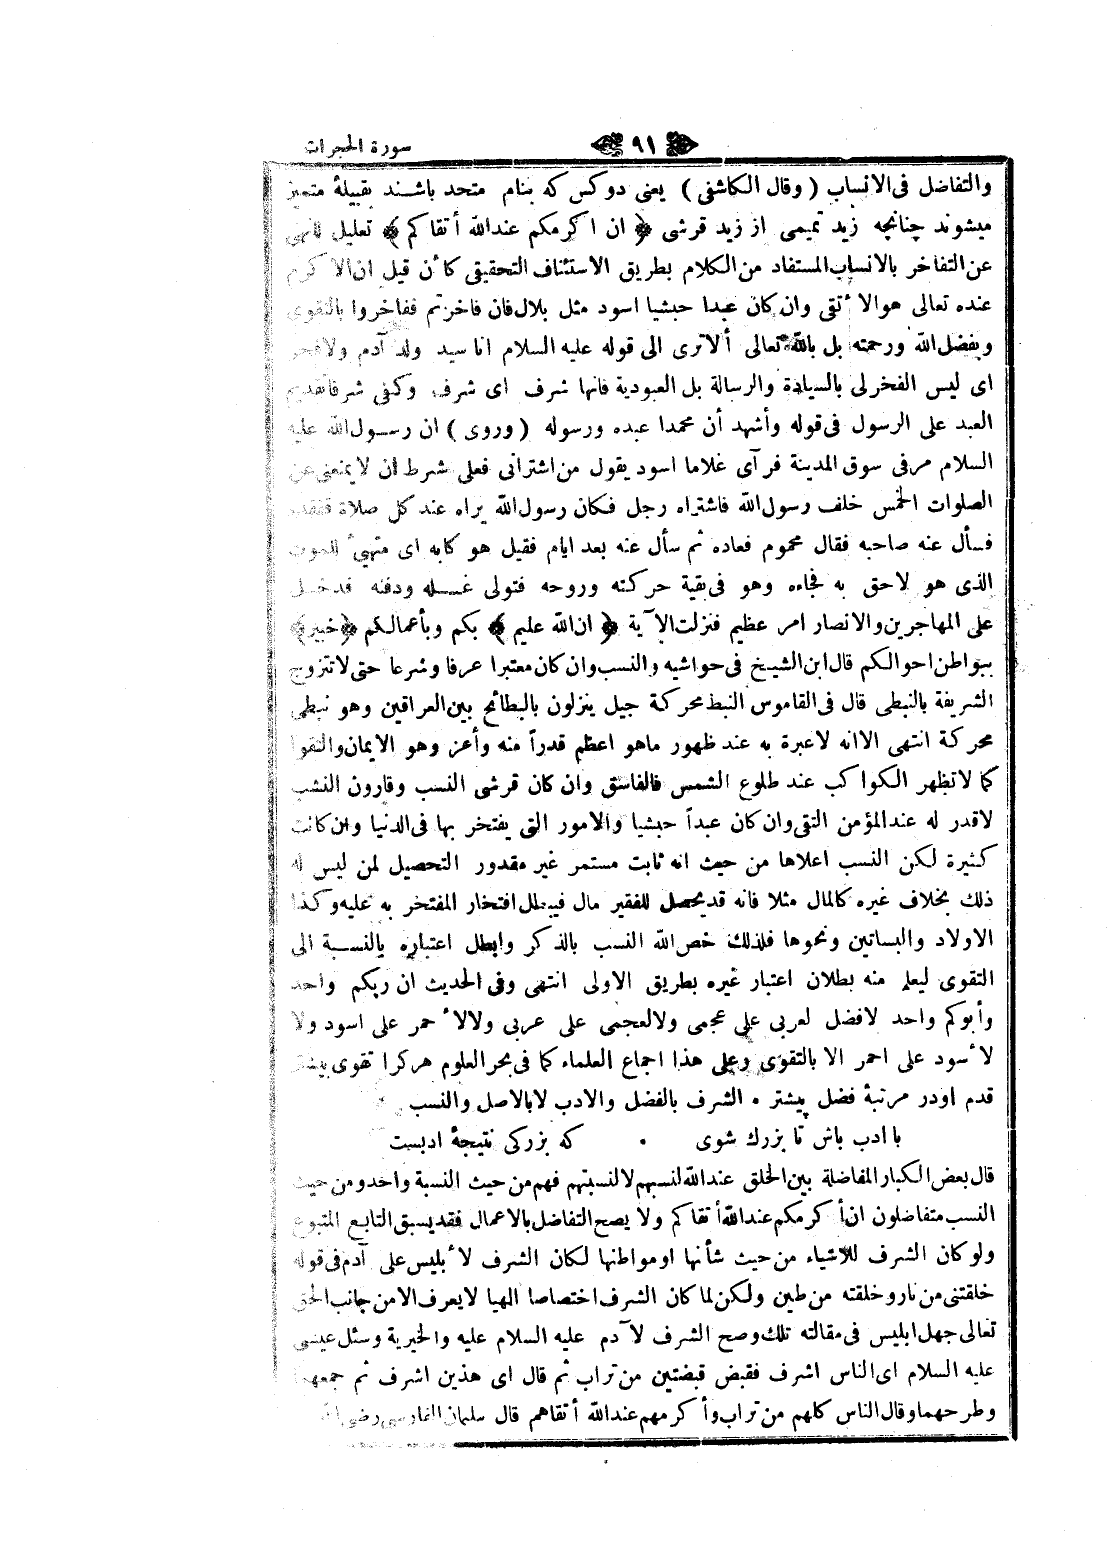 سورة الحجرات ٩١
والتفاضل فى الانساب ( وقال الكاشفى ) يعنى دوكس كه بنام متحد باشند بقبيلهٔ متميز
ميشوند چنانچه زيد تميمى از زيد قرشى ﴿ ان اكرمكم عندالله أتقاكم ﴾ تعليل للنهى
عن التفاخر بالانساب المستفاد من الكلام بطريق الاستئناف التحقيقى كأن قيل ان الاكرم
عنده تعالى هو الأتقى وان كان عبدا حبشيا اسود مثل بلال فان فاخرتم ففاخروا بالتقوى
وبفضل الله ورحمته بل بالله تعالى ألا ترى الى قوله عليه السلام انا سيد ولد آدم ولا فخر
اى ليس الفخر لى بالسيادة والرسالة بل العبودية فانها شرف اى شرف وكفى شرفا تقديم
العبد على الرسول فى قوله وأشهد أن محمدا عبده ورسوله ( وروى ) ان رسول الله عليه
السلام مر فى سوق المدينة فرآى غلاما اسود يقول من اشترانى فعلى شرط ان لا يمنعنى عن
الصلوات الخمس خلف رسول الله فاشتراه رجل فكان رسول الله يراه عند كل صلاة ففقده
فسأل عنه صاحبه فقال محموم فعاده ثم سأل عنه بعد ايام فقيل هو كابه اى متهيئ للموت
الذى هو لاحق به فجاءه وهو فى بقية حركته وروحه فتولى غسله ودفنه فدخل
على المهاجرين والانصار امر عظيم فنزلت الآية ﴿ ان الله عليم ﴾ بكم وبأعمالكم ﴿ خبير ﴾
ببواطن احوالكم قال ابن الشيخ فى حواشيه والنسب وان كان معتبرا عرفا وشرعا حتى لا تتزوج
الشريفة بالنبطى قال فى القاموس النبط محركة جيل ينزلون بالبطائح بين العراقين وهو نبطى
محركة انتهى الا انه لا عبرة به عند ظهور ما هو اعظم قدراً منه وأعز وهو الايمان والتقوا
كما لا تظهر الكواكب عند طلوع الشمس فالفاسق وان كان قرشى النسب وقارون النشب
لا قدر له عند المؤمن التقى وان كان عبداً حبشيا والامور التى يفتخر بها فى الدنيا وان كانت
كثيرة لكن النسب اعلاها من حيث انه ثابت مستمر غير مقدور التحصيل لمن ليس له
ذلك بخلاف غيره كالمال مثلا فانه قد يحصل للفقير مال فيبطل افتخار المفتخر به عليه وكذا
الاولاد والبساتين ونحوها فلذلك خص الله النسب بالذكر وابطل اعتباره بالنسبة الى
التقوى ليعلم منه بطلان اعتبار غيره بطريق الاولى انتهى وفى الحديث ان ربكم واحد
وأبوكم واحد لا فضل لعربى على عجمى ولا لعجمى على عربى ولا لأحمر على اسود ولا
لأسود على احمر الا بالتقوى وعلى هذا اجماع العلماء كما فى بحر العلوم هركرا تقوى بيشتر
قدم او در مرتبهٔ فضل پيشتر • الشرف بالفضل والادب لا بالاصل والنسب
با ادب باش تا بزرك شوى • كه بزركى نتيجهٔ ادبست
قال بعض الكبار المفاضلة بين الخلق عند الله لنسبهم لا لنسبتهم فهم من حيث النسبة واحد ومن حيث
النسب متفاضلون ان أكرمكم عند الله أتقاكم ولا يصح التفاضل بالاعمال فقد يسبق التابع المتبوع
ولو كان الشرف للاشياء من حيث شأنها او مواطنها لكان الشرف لأبليس على آدم فى قوله
خلقتنى من نار وخلقته من طين ولكن لما كان الشرف اختصاصا الهيا لا يعرف الا من جانب الحق
تعالى جهل ابليس فى مقالته تلك وصح الشرف لآدم عليه السلام عليه والخيرية وسئل عيسى
عليه السلام اى الناس اشرف فقبض قبضتين من تراب ثم قال اى هذين اشرف ثم جمعهما
وطرحهما وقال الناس كلهم من تراب وأكرمهم عند الله أتقاهم قال سلمان الفارسى رضى الله